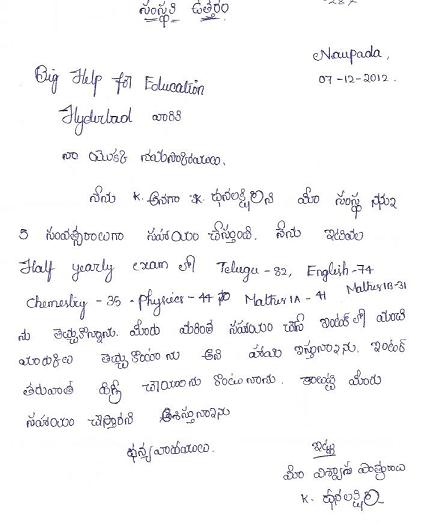 సంస్థకి ఉత్తరం
Naupada,
07-12-2012.
Big Help for Education
Hyderbad వారికి
నా యొక్క నమస్కారములు.
నేను K. అనగా K. ధనలక్ష్మిని మీ సంస్థ నాకు
5 సంవత్సరాలుగా సహాయం చేస్తుంది. నేను ఇటీవల
Half yearly exam లో Telugu - 82, English - 74
Chemestry - 35 - Physics - 44 Maths 1A - 41 Maths 1B - 31
ను తెచ్చుకొన్నాను. మీరు మరింత సహాయం చేసి ఇంటర్ లో మంచి
మార్కులు తెచ్చుకొంటాను అని హామీ ఇస్తున్నాను. ఇంటర్
తరువాత డిగ్రీ చేయాలను కొంటున్నాను. మీరు
సహాయం చేస్తారని ఆశిస్తున్నాను
ధన్యవాదములు.
ఇట్లు
మీ విశ్వాస పాత్రురాలు
K. ధనలక్ష్మి